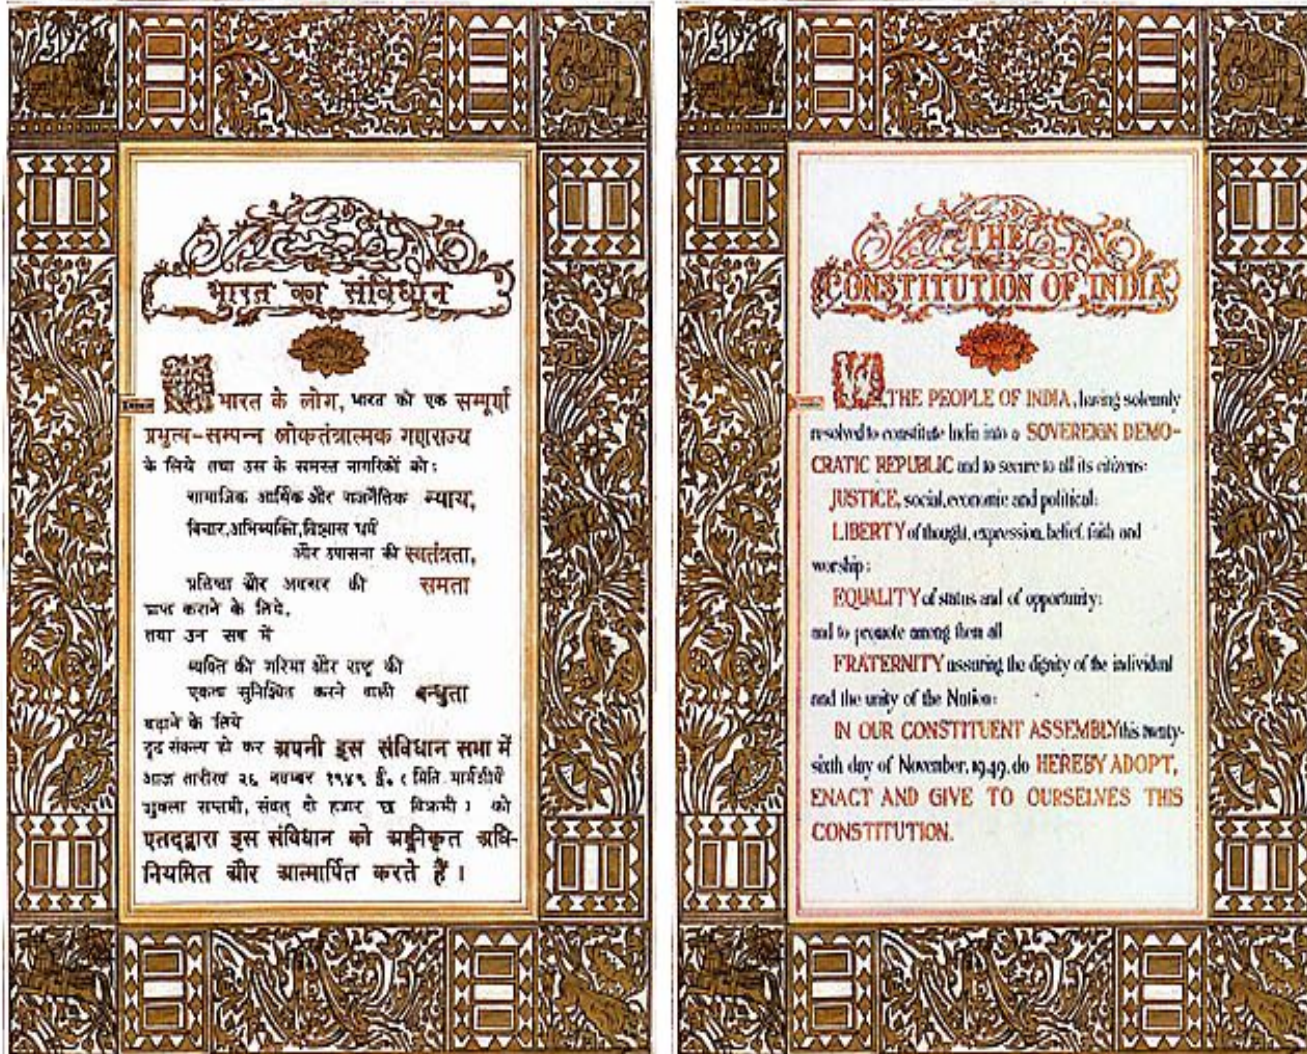 भारत का संविधान
भारत के लोग, भारत को एक सम्पूर्ण
प्रभुत्व-सम्पन्न लोकतंत्रात्मक गणराज्य
के लिये तथा उस के समस्त नागरिकों को:
सामाजिक आर्थिक और राजनैतिक न्याय,
विचार, अभिव्यक्ति, विश्वास धर्म
और उपासना की स्वतंत्रता,
प्रतिष्ठा और अवसर की समता
प्राप्त कराने के लिये,
तथा उन सब में
व्यक्ति की गरिमा और राष्ट्र की
एकता सुनिश्चित करने वाली बन्धुता
बढ़ाने के लिये
दृढ़ संकल्प हो कर अपनी इस संविधान सभा में
आज तारीख २६ नवम्बर १९४९ ई. ( मिति मार्गशीर्ष
शुक्ला सप्तमी, संवत् दो हजार छ विक्रमी ) को
एतद्द्वारा इस संविधान को अङ्गीकृत अधि-
नियमित और आत्मार्पित करते हैं ।
THE
CONSTITUTION OF INDIA
WE, THE PEOPLE OF INDIA, having solemnly
resolved to constitute India into a SOVEREIGN DEMO-
CRATIC REPUBLIC and to secure to all its citizens:
JUSTICE, social, economic and political;
LIBERTY of thought, expression, belief, faith and
worship;
EQUALITY of status and of opportunity;
and to promote among them all
FRATERNITY assuring the dignity of the individual
and the unity of the Nation;
IN OUR CONSTITUENT ASSEMBLY this twenty-
sixth day of November, 1949, do HEREBY ADOPT,
ENACT AND GIVE TO OURSELVES THIS
CONSTITUTION.